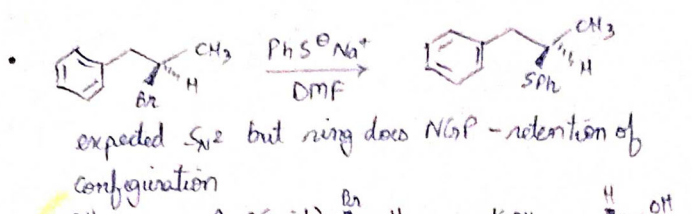 CH₃ PhS⊖Na⁺ CH₃
H DMF H
Br SPh
expected SN2 but ring does NGP - retention of
configuration
Br H OH